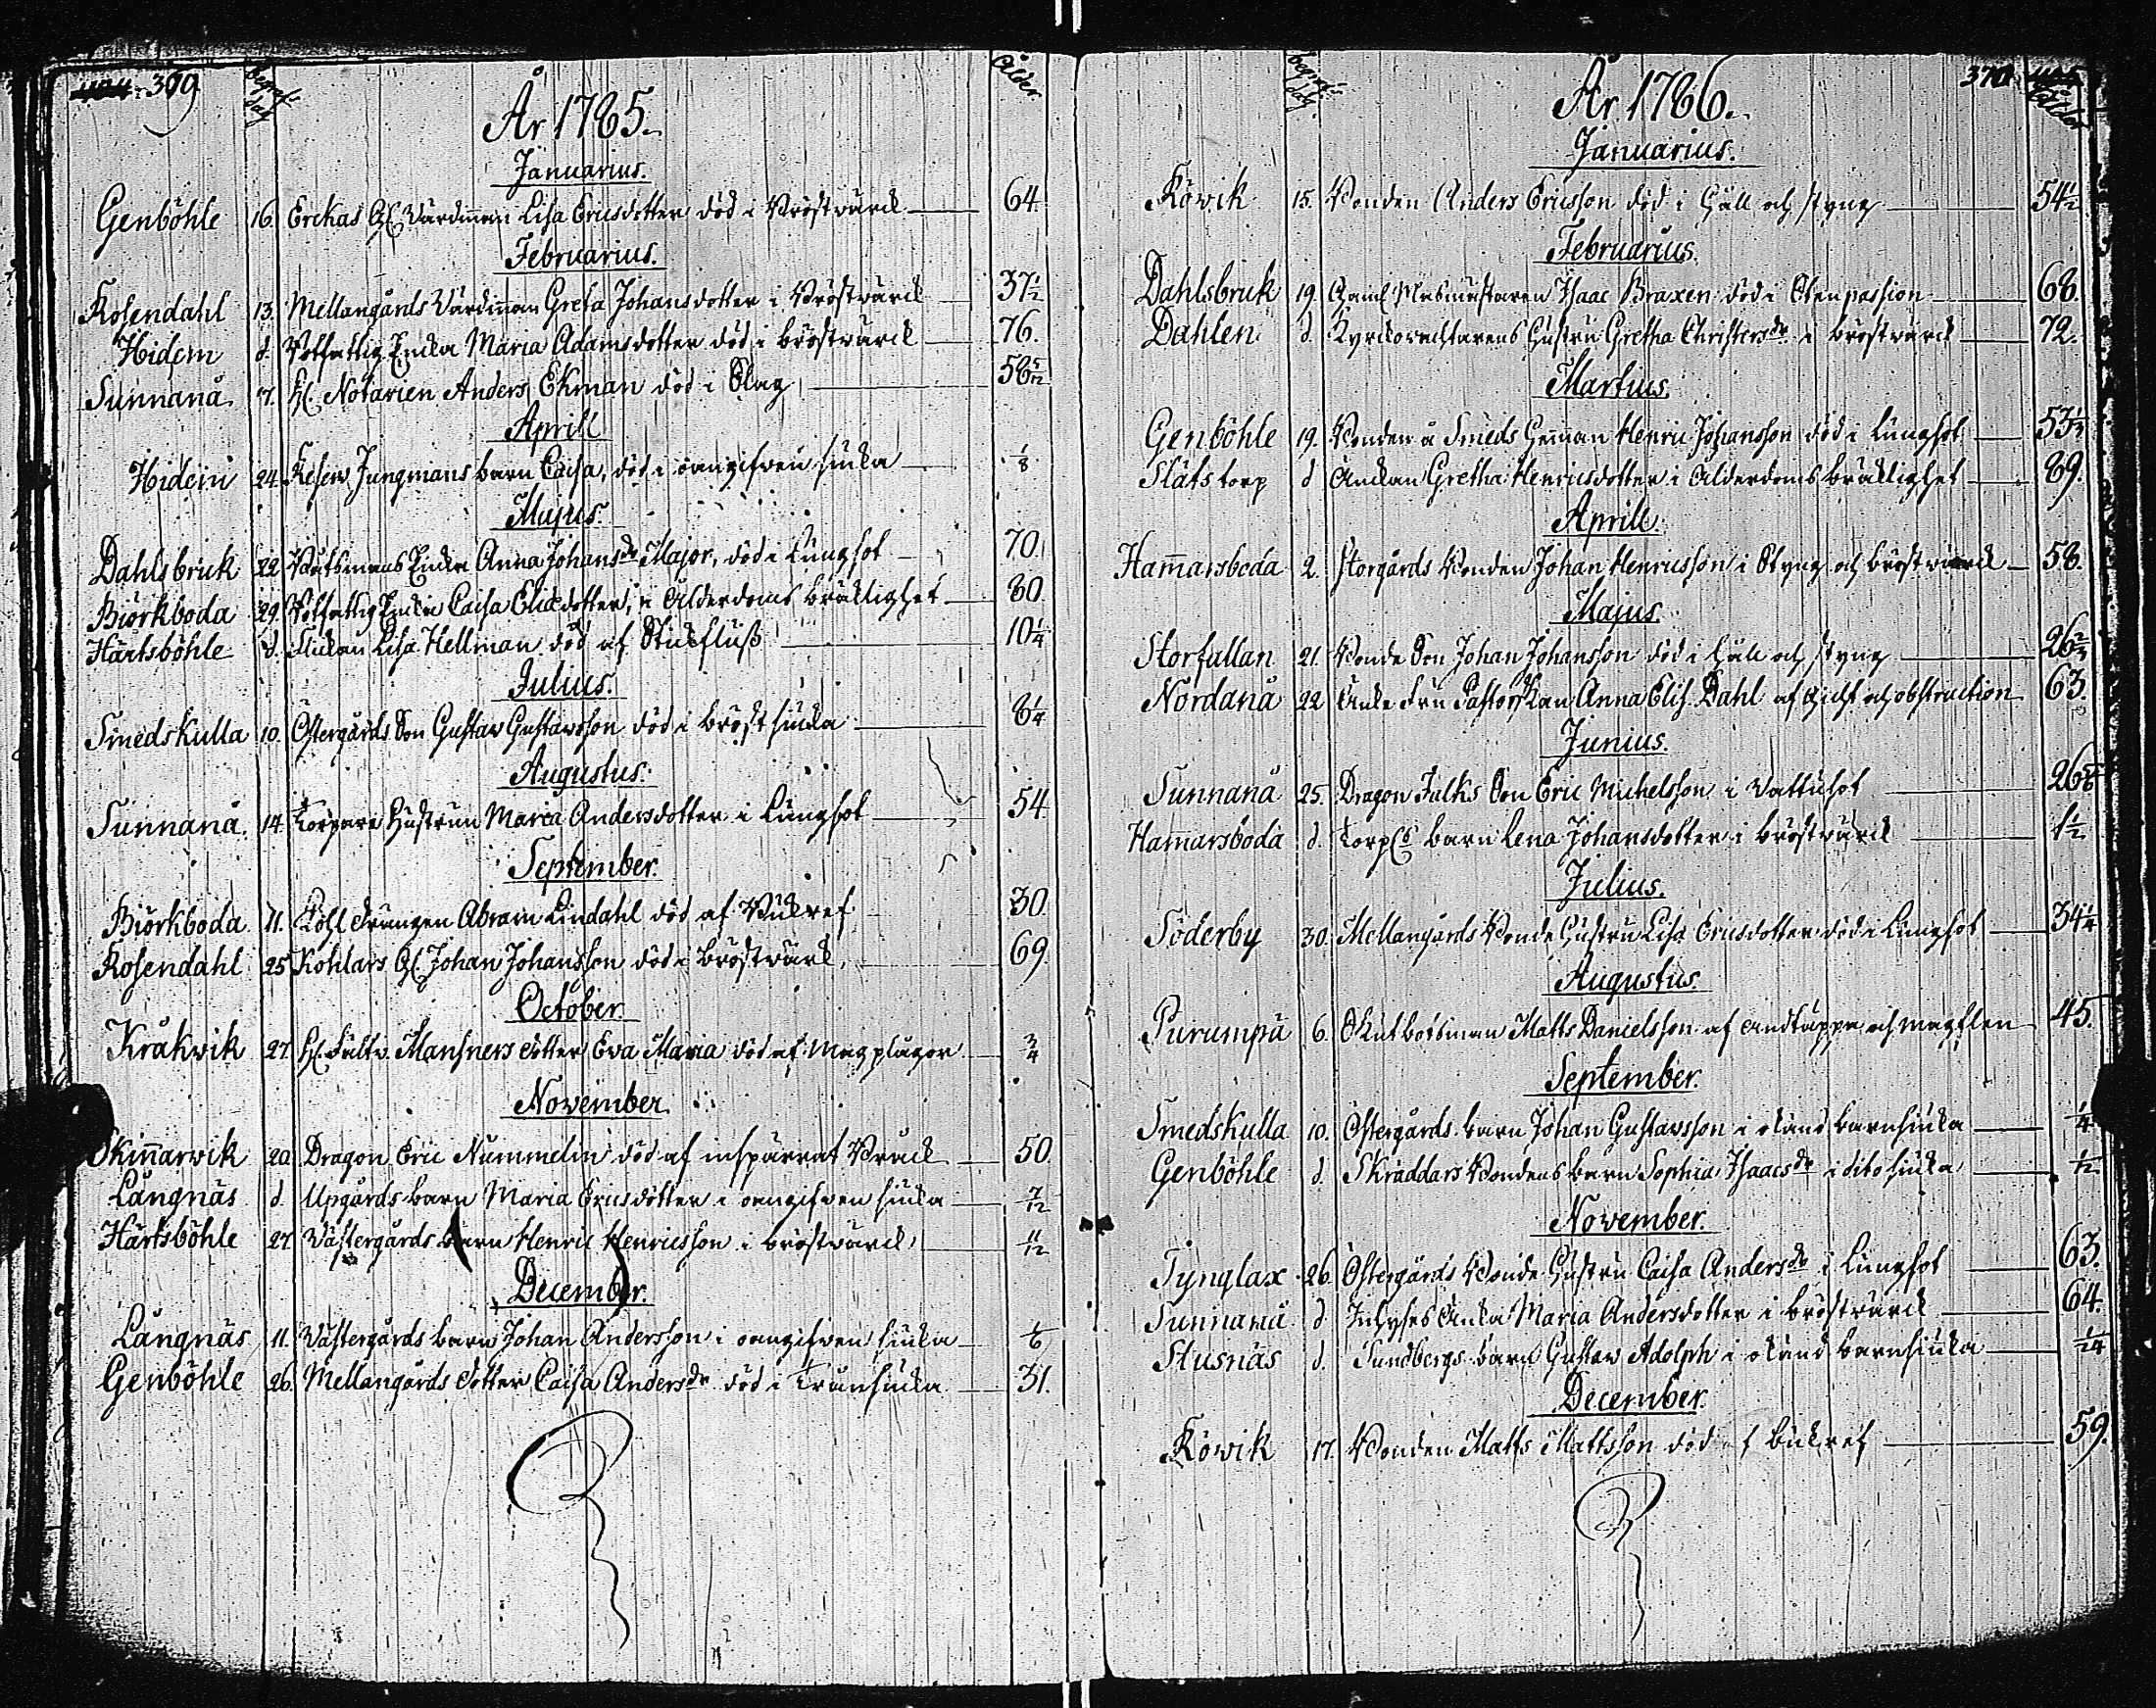 369
begrafn. dag
Ålder.
År 1785.
Januarius.
Genböhle 16. Erckas Gl. Värdinnan Lisa Ericsdotter död i Bröstvärck 64.
Februarius.
Rosendahl 13. Mellangårds Värdinnan Greta Johansdotter i Bröstvärck 37 1/2
Hidem d. Rotfattig Enckia Maria Adamsdotter död i bröstvärck 76.
Sunnanå 17. H. Notarien Anders Ekman död i Slag 58 5/12
Aprill
Hidem 24. Reserv Jungmans barn Caisa, död i oangifven siuka 1/8
Majus.
Dahlsbruk 22 Båtsmans Enckia Anna Johansdr Major, död i Lungsot 70.
Biörkboda 29. Rotfattig Enckia Caisa Ericsdotter, i Ålderdoms bräcklighet 80
Härtsböhle d. Flickan Lisa Hellman död af Stickfluss 10 1/4
Julius.
Smedskulla 10. Östergårds Son Gustav Gustavsson död i bröstsiuka 8 1/4
Augustus.
Sunnanå. 14. Torpare Hustrun Maria Andersdotter i Lungsot 54.
September.
Biörkboda 11. Kohl drängen Abram Lindahl död af Bukref 30.
Rosendahl 25 Kohlars Gl. Johan Johansson död i Bröstvärck, 69.
October.
Kråkvik 27. H. Fältv. Mansners dotter Eva Maria död af magplågor 3/4
November.
Skinnarvik 20. Dragon Eric Nummelin död af inspärrat Bråck 50.
Långnäs d. Upgårds barn Maria Ericsdotter i oangifven siuka 7/12
Härtsböhle 27. Västergårds barn Henric Henricsson i bröstvärck, 11/12
December.
Långnäs 11. Västergårds barn Johan Andersson i oangifven siuka 1/6
Genböhle 26. Mellangårds dotter Caisa Andersdr död i Tränsiuka 31.
370
begrafn. dag
Ålder
År 1786.
Januarius.
Röwik 15. Bonden Anders Ericsson död i Håll och styng 54 1/2
Februarius.
Dahlsbruk 19. Gaml. Masmästaren Isaac Braxen död i Stenpassion 68.
Dahlen d. Kyrckovachtarens Hustru Gretha Christersdr i bröstvärck 72.
Martius.
Genböhle 19. Bonden å Smeds Hemman Henric Johansson död i Lungsot 53 1/2
Slätstorp d Änckan Gretha Henricsdotter i Ålderdoms bräcklighet 89.
Aprill.
Hammarsboda 2. Storgårds Bonden Johan Henricsson i Styng och bröstvärck 58.
Majus.
Storfallan 21. Bonde Son Johan Johansson död i Håll och styng 26 2/3
Nordanå 22 Encke Fru Pastorskan Anna Elis. Dahl af gicht och obstruction 63.
Junius.
Sunnanå 25. Dragon Falks Son Eric Michelsson i Vattusot 26 5/6
Hammarsboda d. Torps barn Lena Johansdotter i bröstvärck 1 1/2
Julius.
Söderby 30. Mellangårds Bonde Hustru Lisa Ericsdotter död i Lungsot 34 1/4
Augustus.
Purumpä 6. Skutbåtsman Matts Danielsson af andtäppa och magflen 45.
September.
Smedskulla 10. Östergårds barn Johan Gustavsson i okänd barnsiuka 1/4
Genböhle d. Skräddars Bondens barn Sophia Isaacsdr i dito siuka 1/2
November.
Tynglax 26. Östergårds Bonde Hustru Caisa Andersdr i Lungsot 63.
Sunnanå d. Inhyses Enka Maria Andersdotter i bröstvärck 64.
Stusnäs d. Sundbergs barn Gustav Adolph i okänd barnsiuka 1/24
December.
Röwik 17. Bonden Matts Mattsson död af bukref 59.